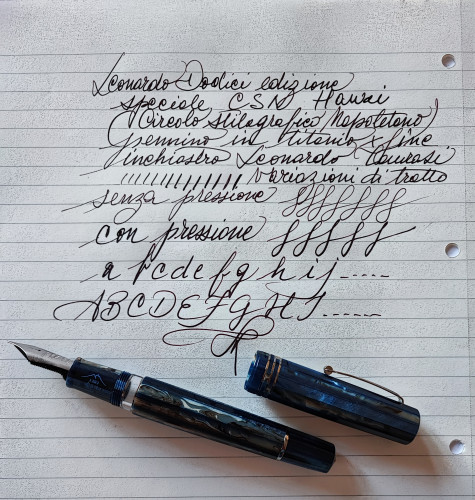 Leonardo Dodici edizione
speciale CSN Hawai
(Circolo Stilografico Napoletano)
pennino in titanio fine
inchiostro Leonardo
variazioni di tratto
senza pressione ffffffff
con pressione fffff
a b c d e f g h i j .....
A B C D E F G H I ......